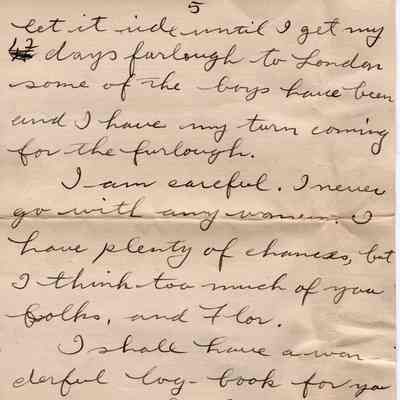 5
let it ride until I get my
days furlough to London
some of the boys have been
and I have my turn coming
for the furlough.
I am careful. I never
go with any women. I
have plenty of chances, but
I think too much of you
folks, and Flor.
I shall have a won-
derful log-book for you